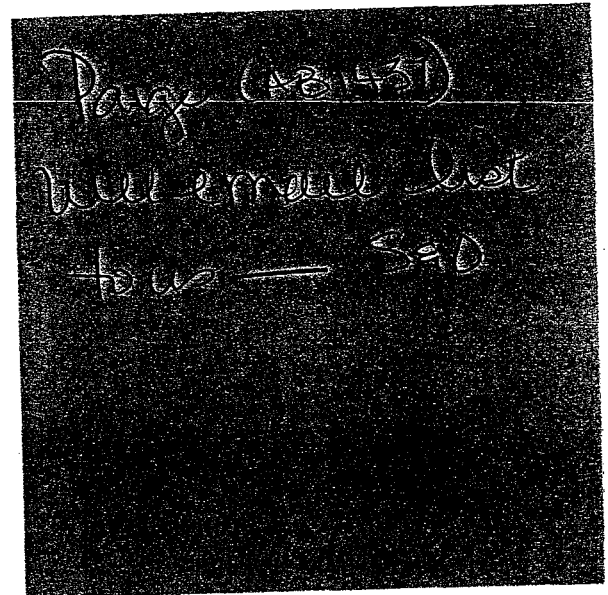 Paige (AB 1437)
will email list
to us —